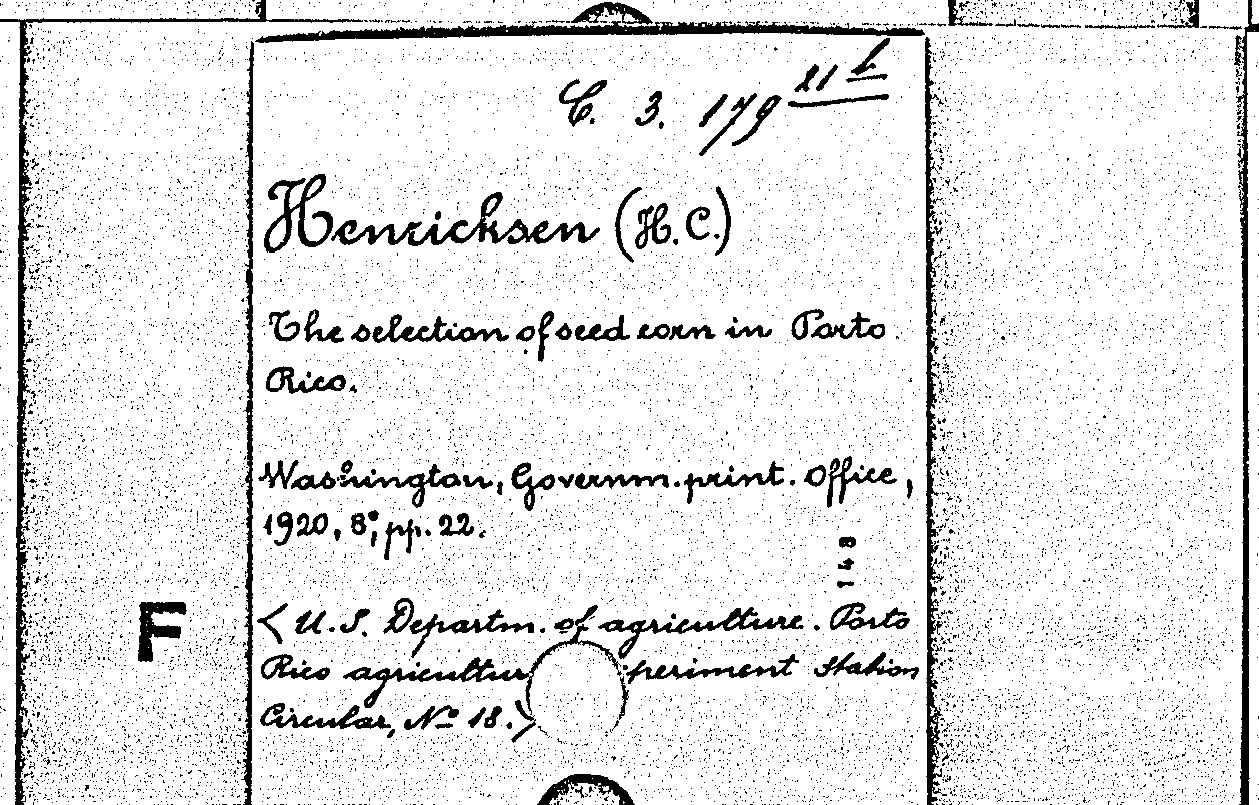 C. 3. 179
Henricksen (H. C.)
The selection of seed corn in Porto
Rico.
Washington, Governm. print. Office,
1920, 8°, pp. 22.
143
< U.S. Departm. of agriculture. Porto
F
Rico agricultur periment Station
Circular, No 18.>